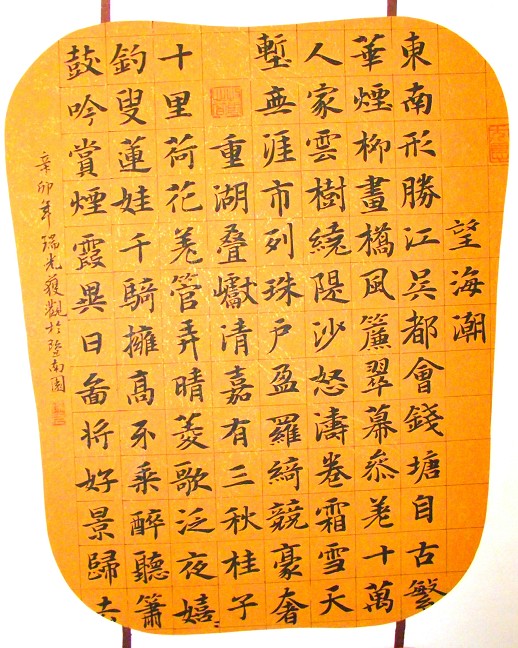 望海潮
東南形勝江吳都會錢塘自古繁
華煙柳畫橋風簾翠幕叅差十萬
人家雲樹繞隄沙怒濤卷霜雪天
塹無涯市列珠戶盈羅綺競豪奢
重湖叠巘清嘉有三秋桂子
十里荷花羌管弄晴菱歌泛夜嬉
釣叟蓮娃千騎擁高牙乘醉聽簫
鼓吟賞煙霞異日啚將好景歸去
辛卯年瑞光獲觀於暨南園